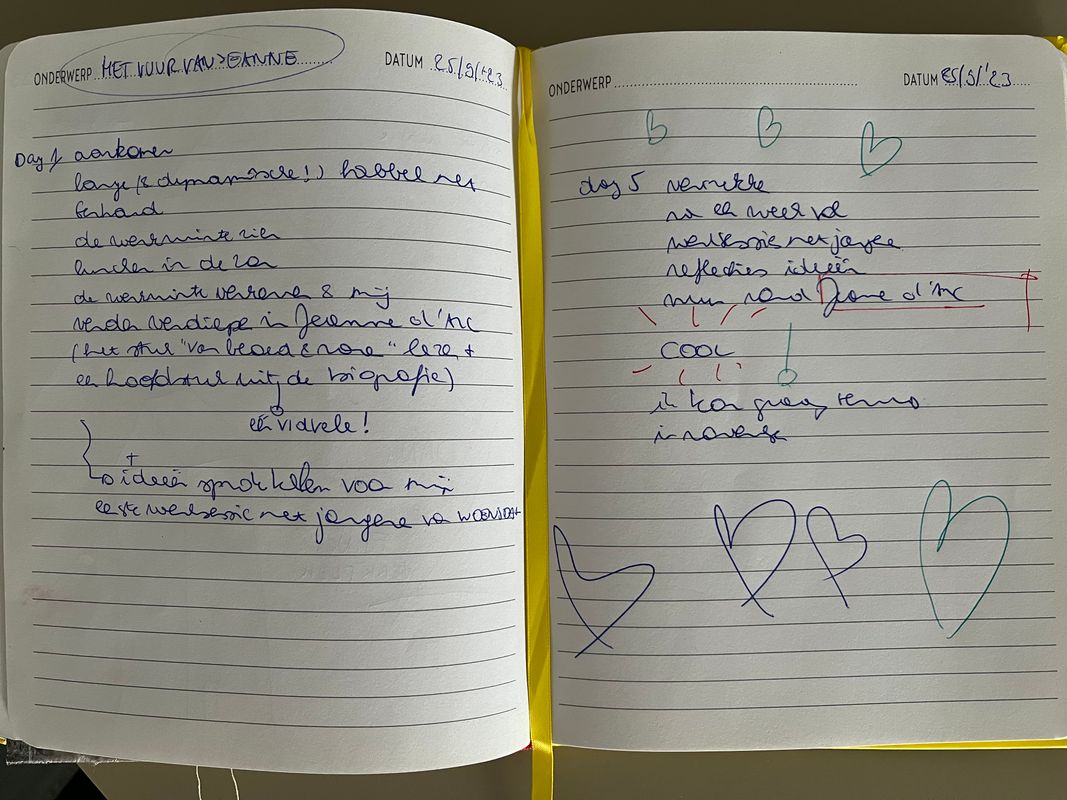 ONDERWERP HET VUUR VAN JEANNE
DATUM 25/9/'23
Day 1 aankomen
lange (& dynamische!) babbel met
Gerhard
de werkruimte zien
lunchen in de zon
de werkruimte verkennen & mij
verder verdiepen in Jeanne d'Arc
(het stuk "van bloed & rozen" lezen +
een hoofdstuk uit de biografie)
één vd vele!
+
ideeën sprokkelen voor mijn
eerste werksessie met jongeren van
ONDERWERP
DATUM 25/9/'23
day 5 vertrekken
na een week vol
werksessies met jongeren
reflecties ideeën
rond Jeanne d'Arc
COOL
ik kom graag terug
in november